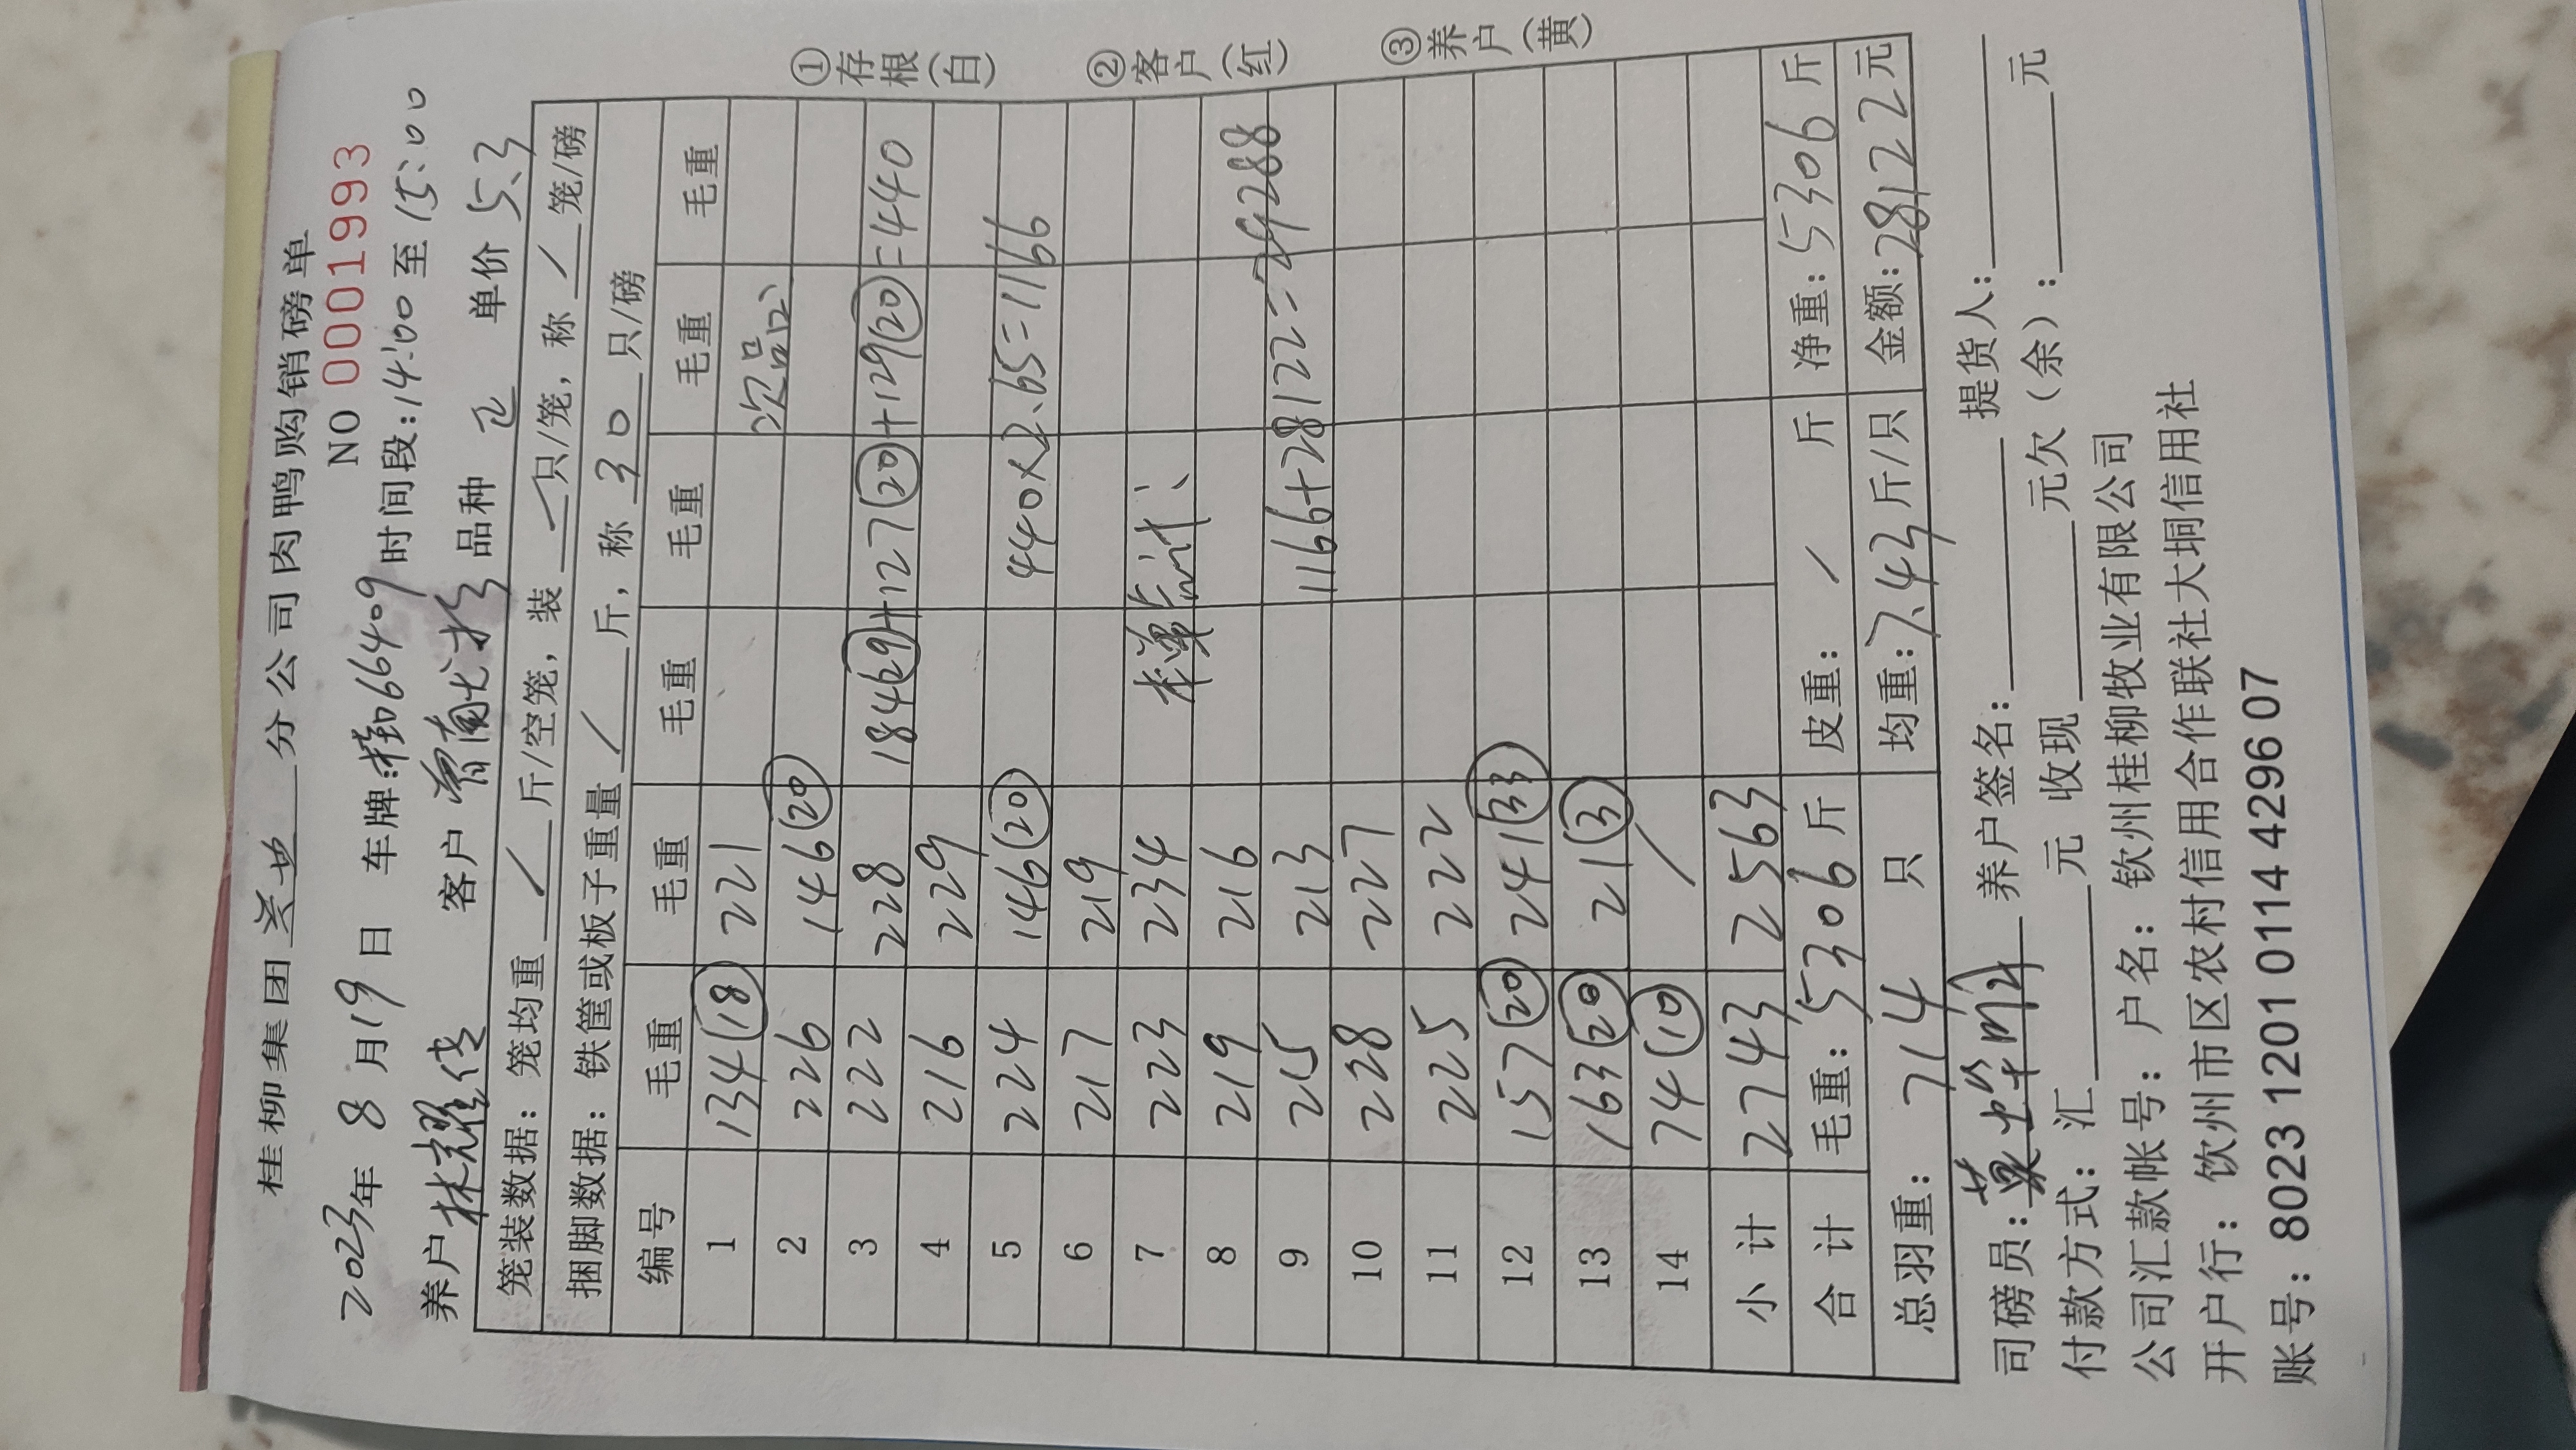 桂柳集团 分公司肉鸭购销磅单
NO 0001993
2023年 8 月19日 车牌: 066409 时间段:14:00 至 15:00
养户 林耀 客户 曾 品种 正 单价 5.3
笼装数据: 笼均重 / 斤/空笼, 装 / 只/笼, 称 / 笼/磅
捆脚数据: 铁筐或板子重量 / 斤, 称 30 只/磅
编号 毛重 毛重 毛重 毛重 毛重 毛重
1 134(18) 221 次品
2 226 146(20)
3 222 228 184(29)+127(20)+129(20)=440
4 216 229
5 224 146(20) 440×2.65=1166
6 217 219
7 223 234 本单总计:
8 219 216
9 215 213 1166+28122=29288
10 228 227
11 225 222
12 157(20) 241(33)
13 163(20) 21(3)
14 74(10) /
小计 2743 2563
合计 毛重: 5306 斤 皮重: / 斤 净重: 5306 斤
总羽重: 714 只 均重: 7.43 斤/只 金额: 28122元
①存根(白)
②客户(红)
③养户(黄)
司磅员: 养户签名: 提货人:
付款方式: 汇 元 收现 元欠(余): 元
公司汇款帐号: 户名: 钦州桂柳牧业有限公司
开户行: 钦州市区农村信用合作联社大垌信用社
账号: 8023 1201 0114 4296 07